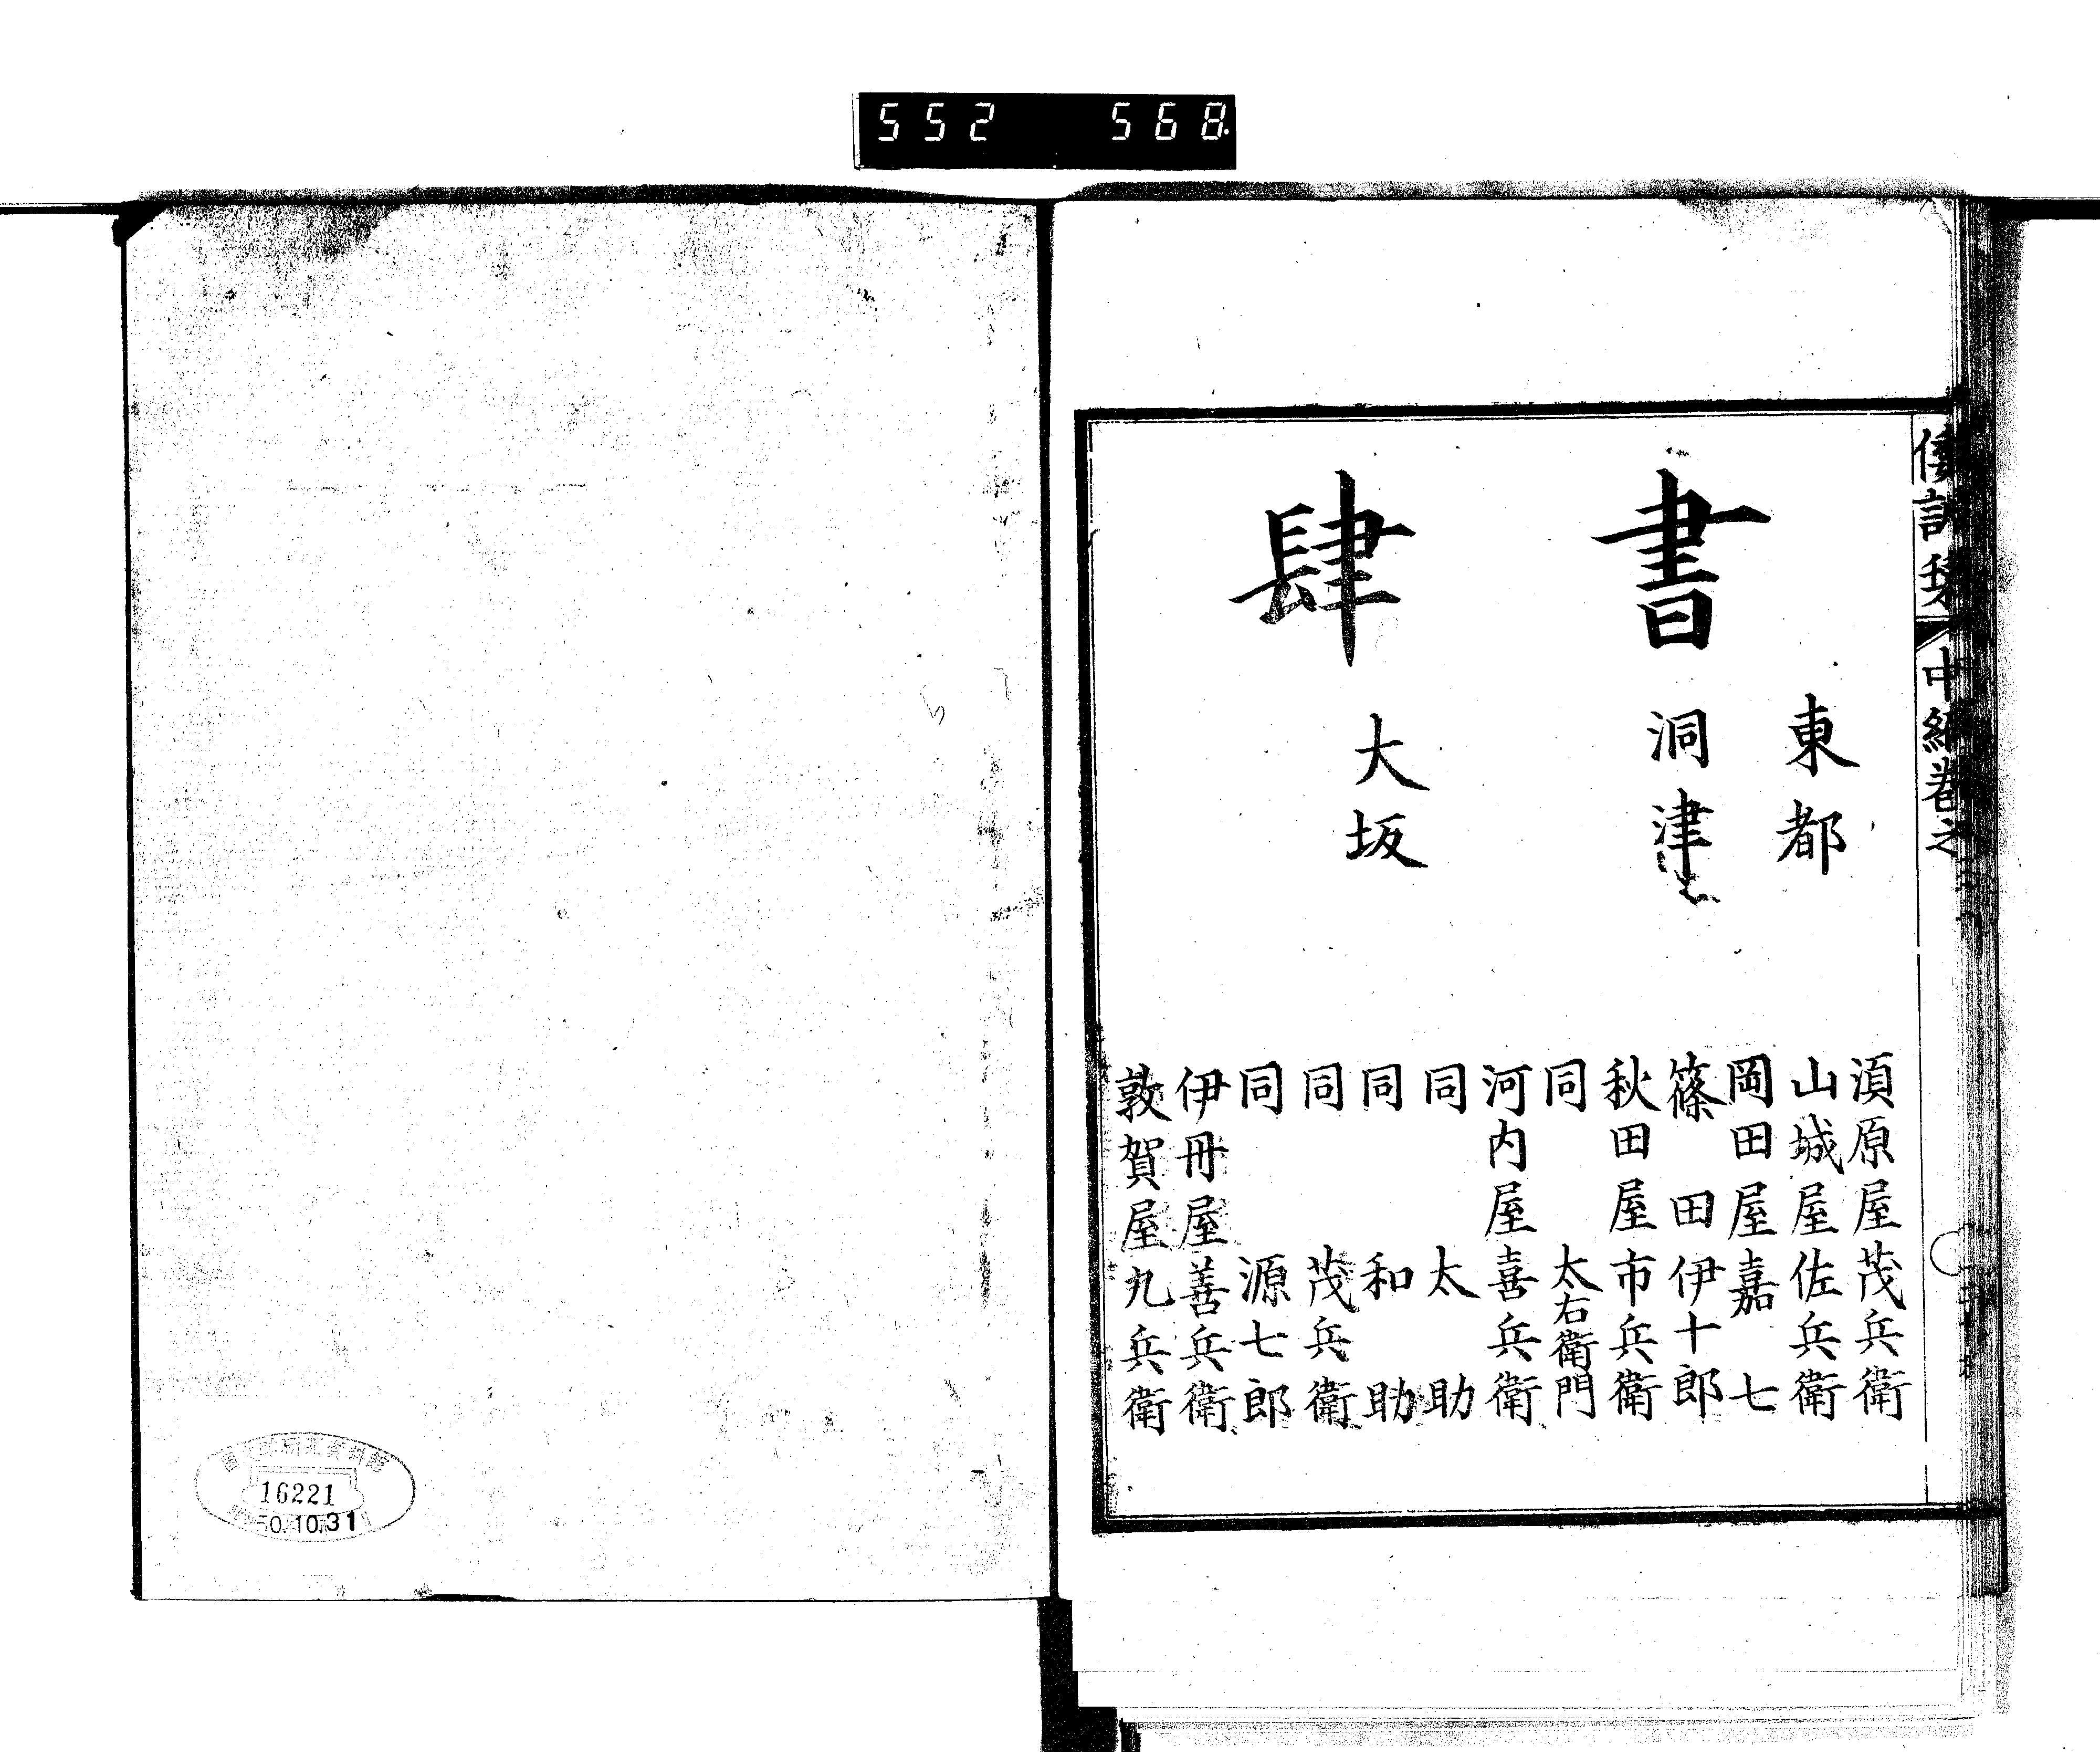 552 568
倭訓栞 中編巻之
書肆
東都
須原屋茂兵衛
山城屋佐兵衛
岡田屋嘉七
洞津
篠田伊十郎
大坂
秋田屋市兵衛
同 太右衛門
河内屋喜兵衛
同 太助
同 和助
同 茂兵衛
同 源七郎
伊丹屋善兵衛
敦賀屋九兵衛
16221
50.10.31